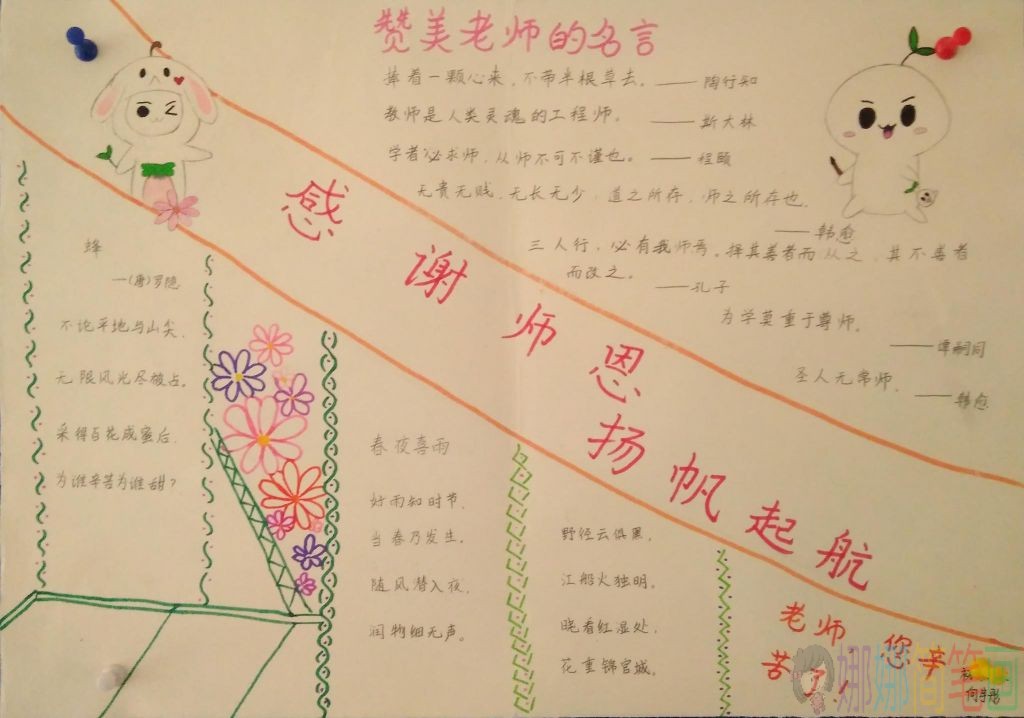 赞美老师的名言
捧着一颗心来，不带半根草去。——陶行知
教师是人类灵魂的工程师。——斯大林
学者必求师，从师不可不谨也。——程颐
无贵无贱，无长无少，道之所存，师之所存也。
——韩愈
三人行，必有我师焉。择其善者而从之，其不善者
而改之。——孔子
为学莫重于尊师。
——谭嗣同
圣人无常师。
——韩愈
感谢师恩扬帆起航
蜂
—（唐）罗隐
不论平地与山尖，
无限风光尽被占。
采得百花成蜜后，
为谁辛苦为谁甜？
春夜喜雨
好雨知时节，
当春乃发生。
随风潜入夜，
润物细无声。
野径云俱黑，
江船火独明。
晓看红湿处，
花重锦官城。
老师 您辛
苦了！
娜娜简笔画